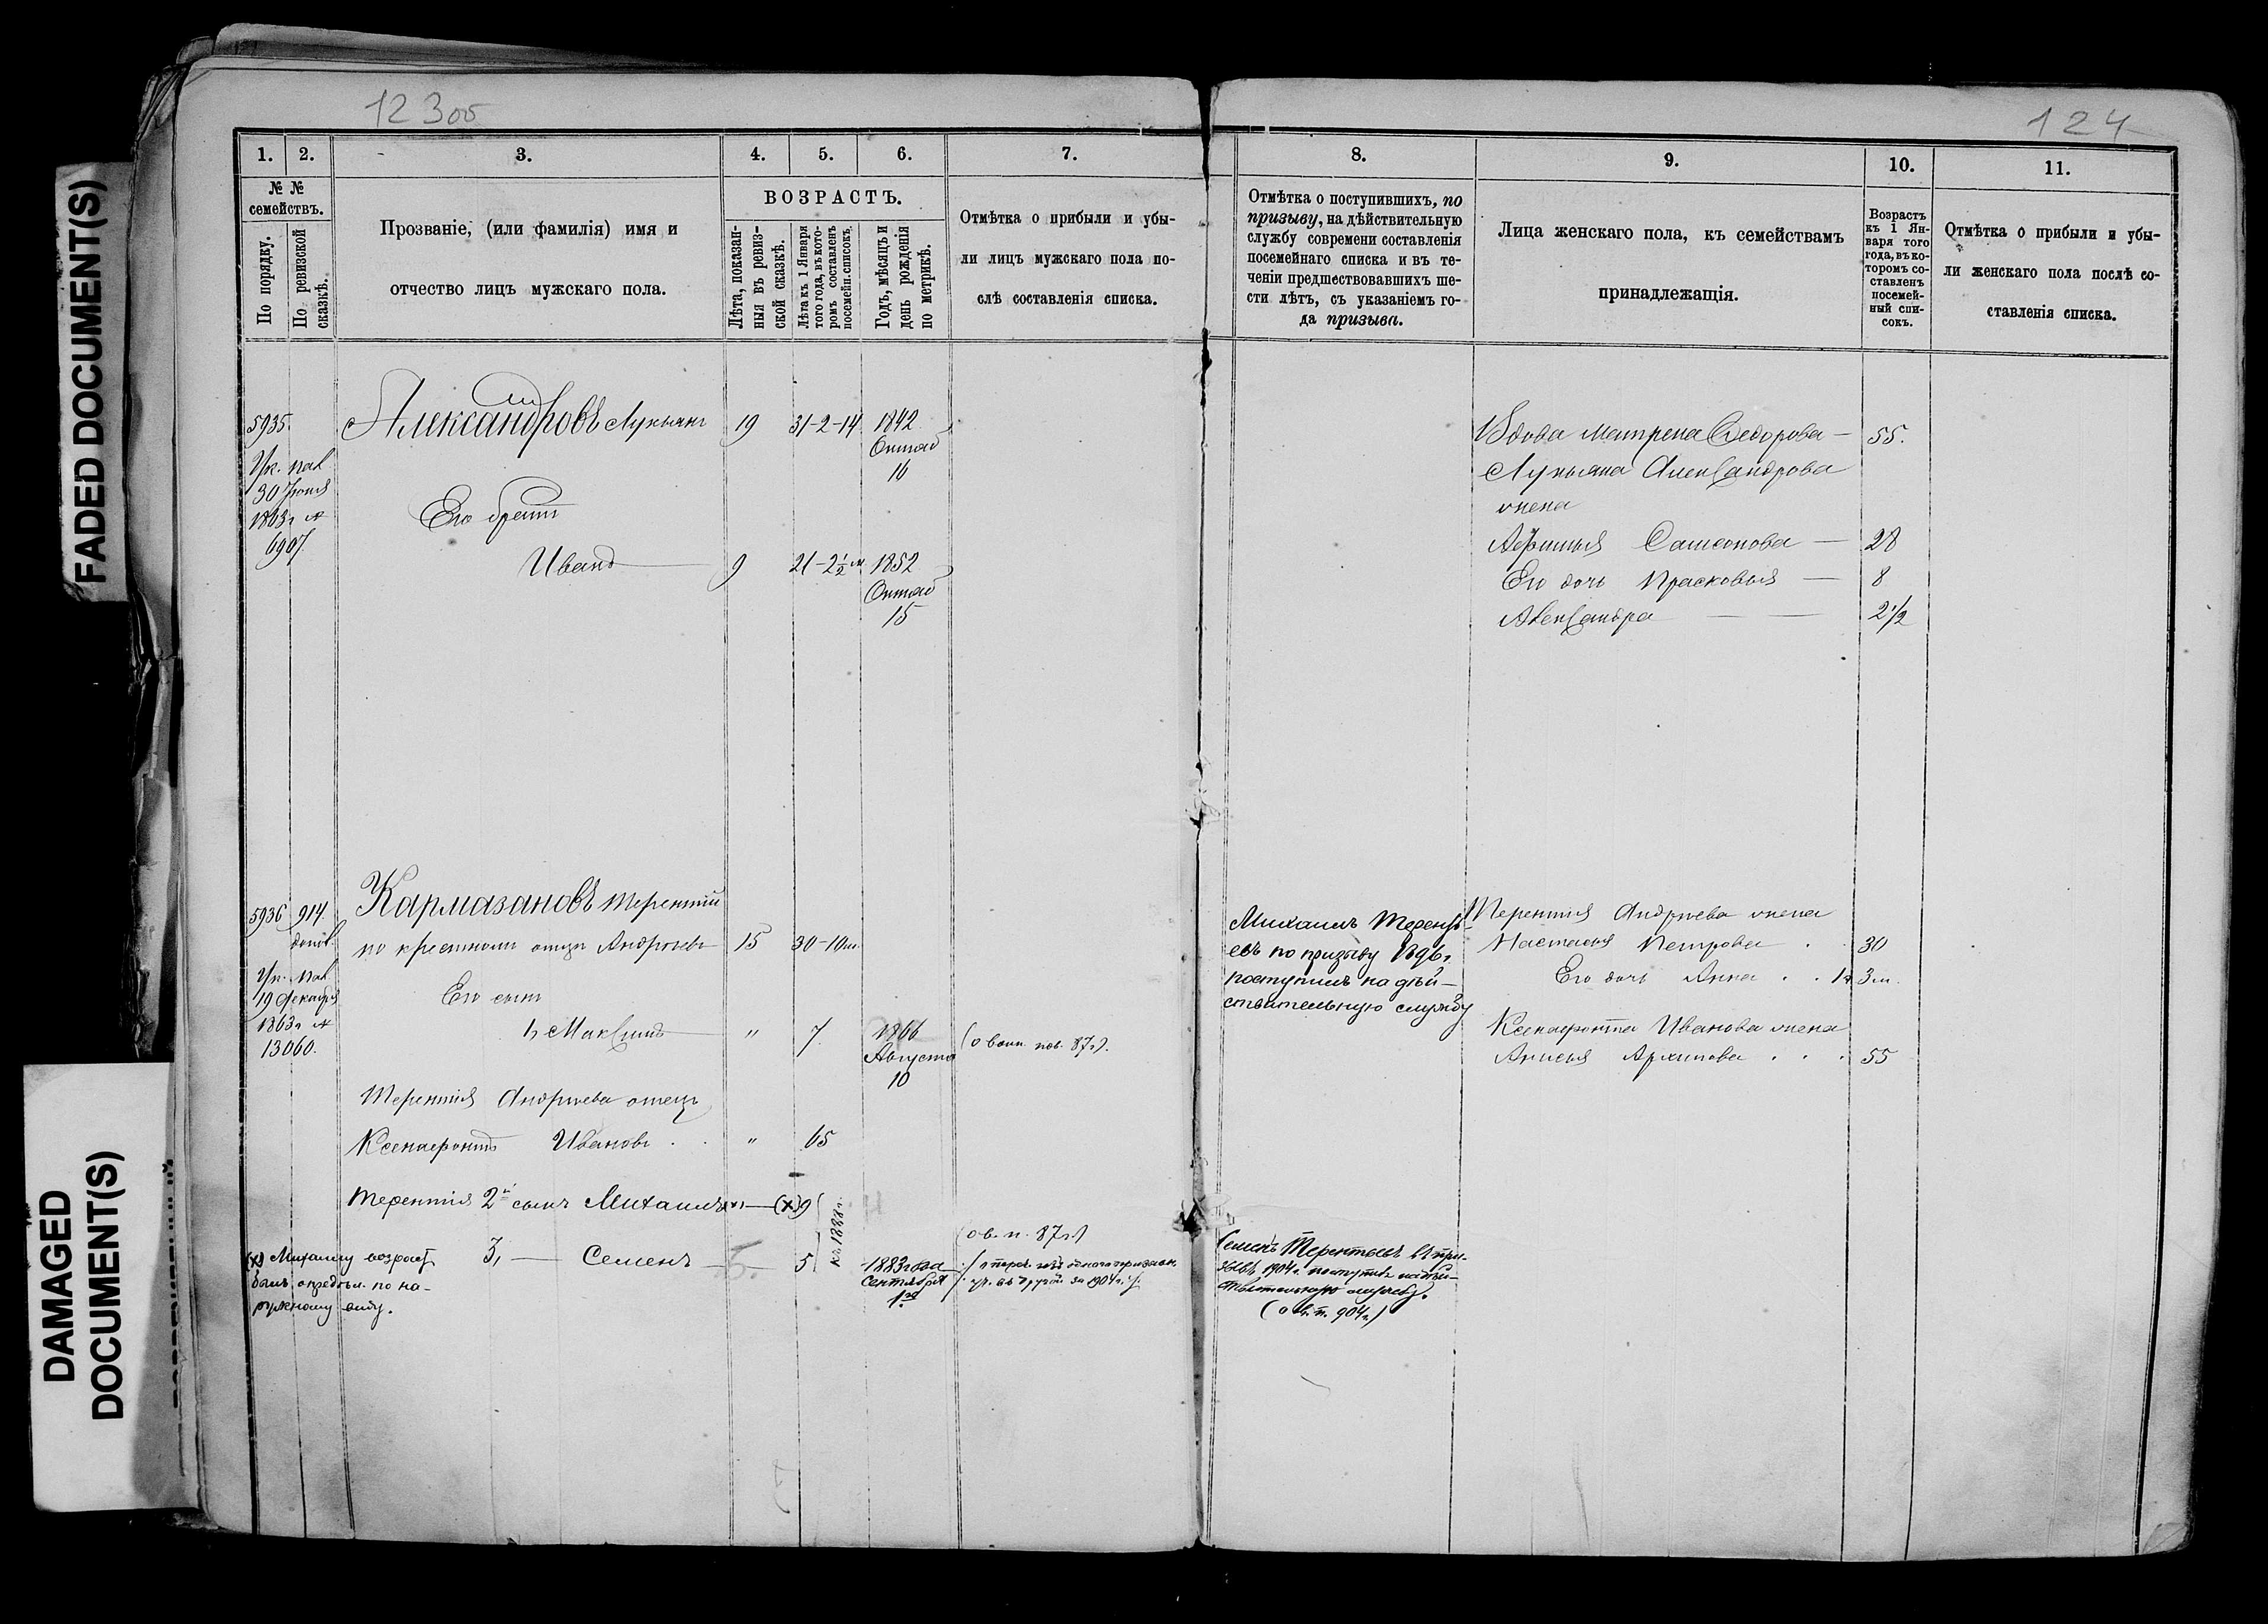 12300
124
FADED DOCUMENT(S)
DAMAGED
DOCUMENT(S)
1.
2.
3.
4.
5.
6.
7.
№ №
семействъ.
По порядку.
По ревизской
сказкѣ.
Прозваніе, (или фамилія) имя и
отчество лицъ мужскаго пола.
ВОЗРАСТЪ.
Лѣта, показан-
ныя въ ревиз-
ской сказкѣ.
Лѣта къ 1 Января
того года, въ кото-
ромъ составленъ
посемейн. списокъ.
Годъ, мѣсяцъ и
день рожденія
по метрикѣ.
Отмѣтка о прибыли и убы-
ли лицъ мужскаго пола по-
слѣ составленія списка.
5935.
Александровъ Лукьянъ
19
31-2-14
1842
Октяб
16
Ук. пал
30 Іюня
1863 г №
6907.
Его братъ
Иванъ
9
21-2½ м.
1852
Октяб
15
5936
914.
допол.
Кармазановъ Терентій
по крестному отцу Андреевъ
15
30-10м.
Ук. пал
19 Декабря
1863 г №
13060.
Его сынъ
1, Максимъ
"
7
1866
Августа
10
(о воин. пов. 87 г).
Терентія Андреева отецъ
Ксенофонтъ Ивановъ . .
"
65
Терентія 2й сынъ Михаилъ
(x) 9
къ 1888 г.
(о в. п. 87 г)
3, — Семенъ
5
1883 года
Сентября
1го
(x) Михаилу возрастъ
былъ опредѣл. по на-
ружному виду.
8.
9.
10.
11.
Отмѣтка о поступившихъ, по
призыву, на дѣйствительную
службу современи составленія
посемейнаго списка и въ те-
ченіи предшествовавшихъ ше-
сти лѣтъ, съ указаніемъ го-
да призыва.
Лица женскаго пола, къ семействамъ
принадлежащія.
Возрастъ
къ 1 Ян-
варя того
года, въ ко-
торомъ со-
ставленъ
посемей-
ный спи-
сокъ.
Отмѣтка о прибыли и убы-
ли женскаго пола послѣ со-
ставленія списка.
Вдова Матрена Федорова —
55.
Лукьяна Александрова
жена
Афимья Самсонова —
28
Его дочь Прасковья —
8
Александра
2½
Михаилъ Терентъ-
евъ по призыву 1896 г.
поступилъ на дѣй-
ствительную службу
Терентія Андреева жена
Настасья Петрова .
30
Его дочь Анна . . 1 г
3 м.
Ксенофонта Иванова жена
Анисья Архипова . . .
55
Семенъ Терентьевъ въ при-
зывѣ 1904 г. поступилъ на дѣй-
ствительную службу.
(о в. п. 904 г.)